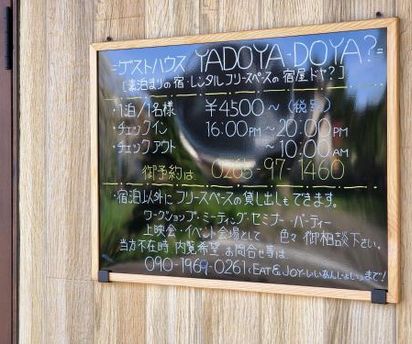 =ゲストハウス YADOYA-DOYA?=
[素泊まりの宿・レンタルフリースペースの宿屋ドヤ?]
・1泊/1名様 ¥4500~(税別)
・チェックイン 16:00PM~20:00PM
・チェックアウト ~10:00AM
御予約は 0265-97-1460
・宿泊以外にフリースペースの貸し出しもできます。
ワークショップ・ミーティング・セミナー・パーティー
上映会・イベント会場として 色々御相談下さい。
当方不在時 内覧希望 お問合せ等は
090-1969-0261(EAT&JOY-いいあんじょいっまで!)